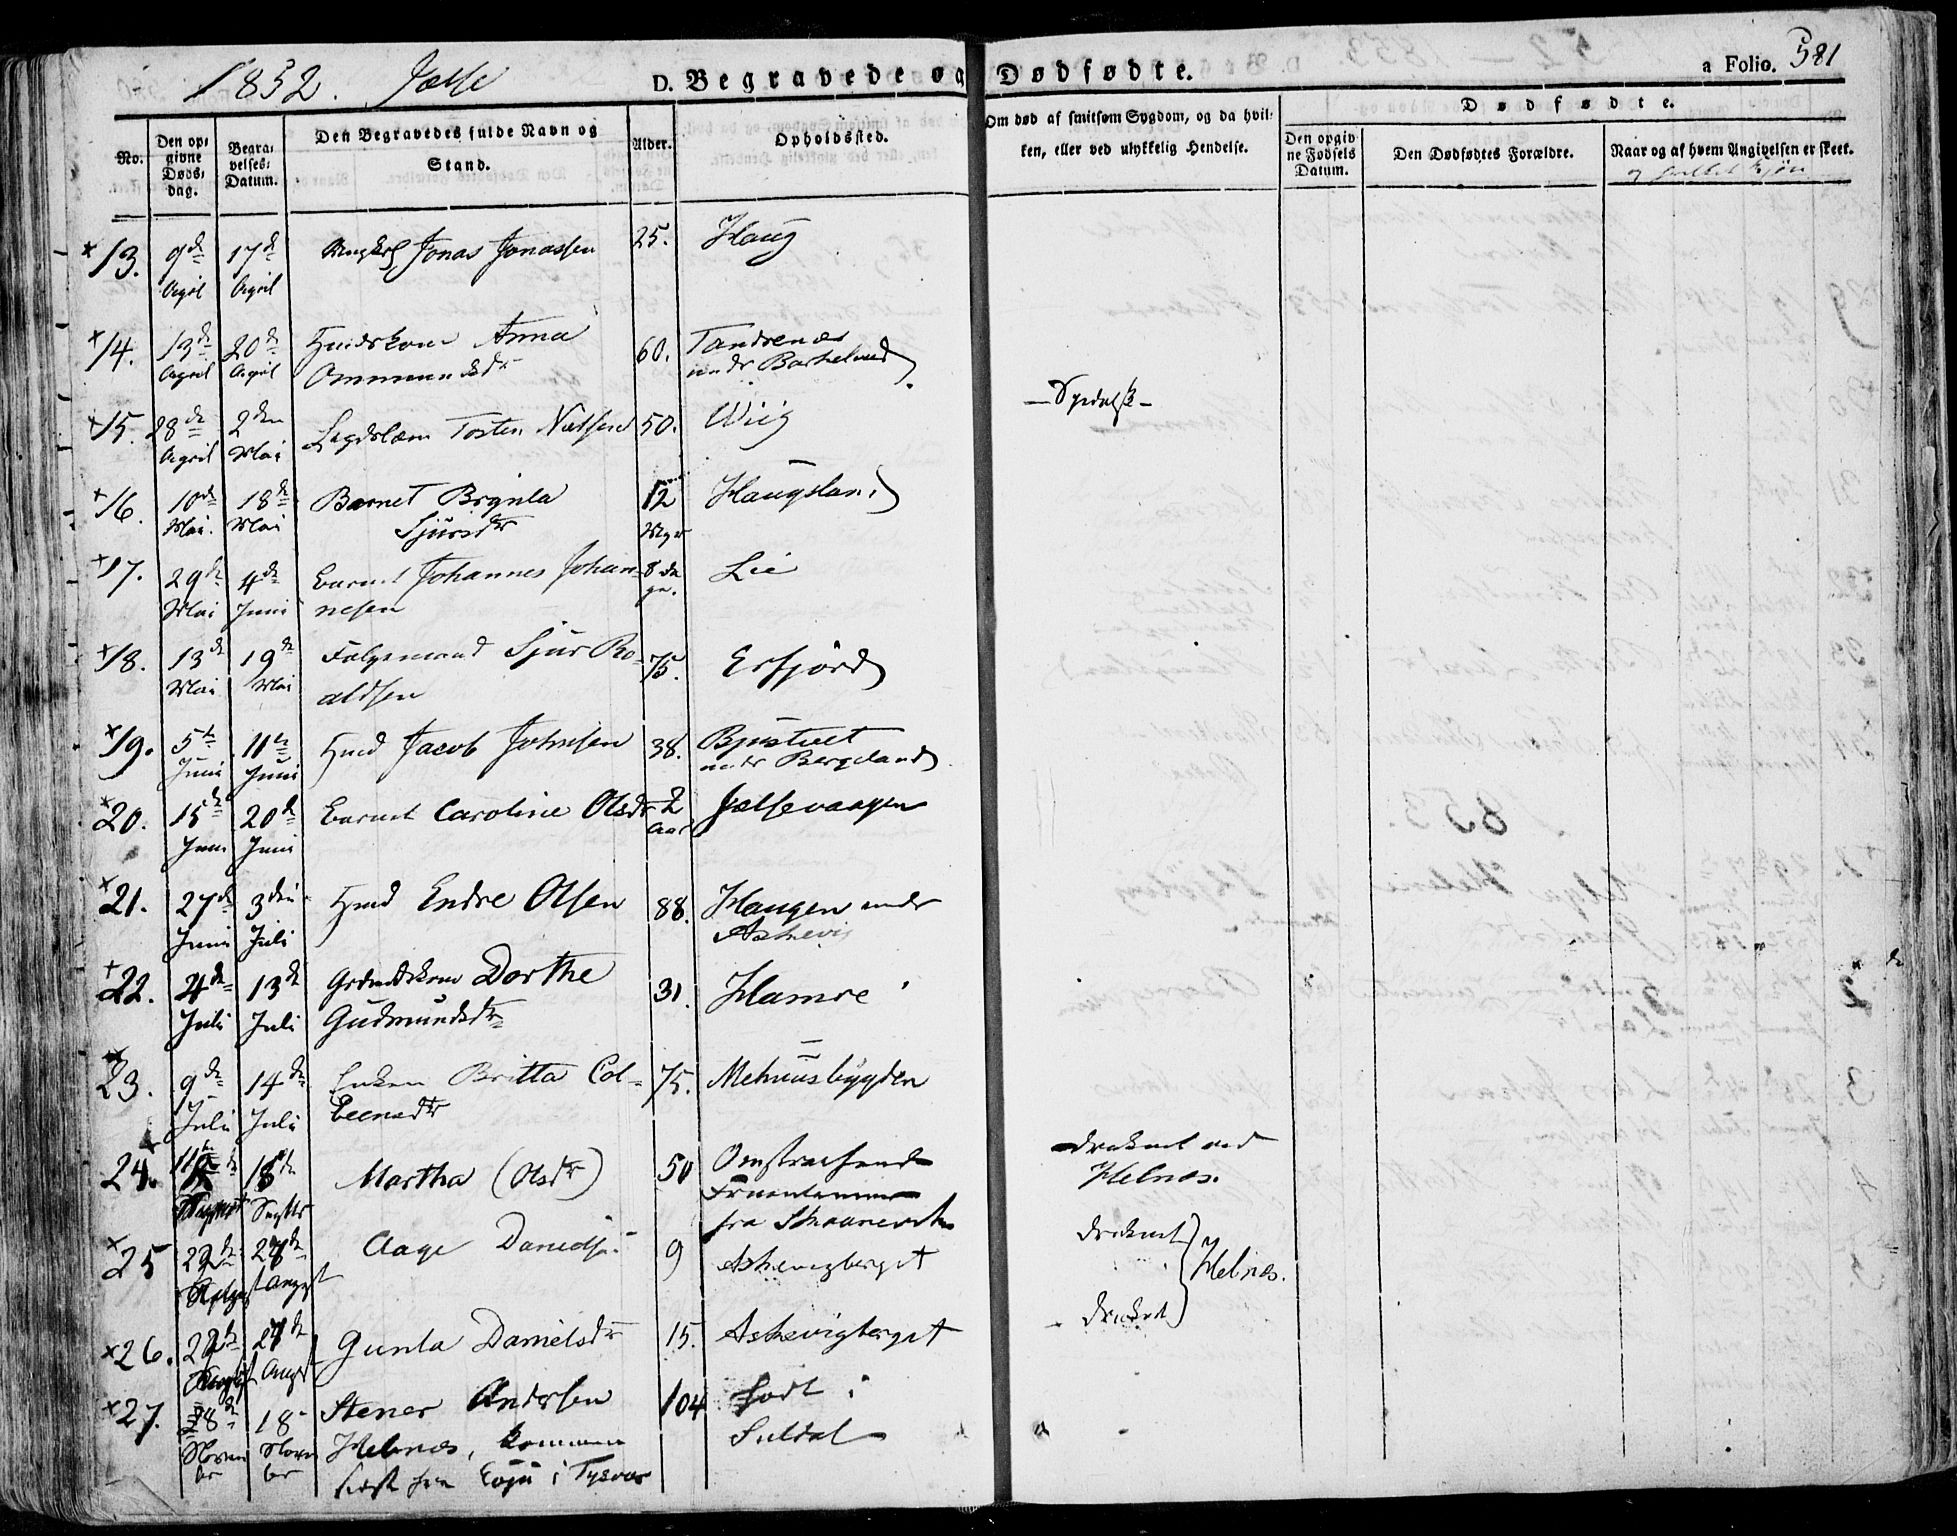 1852. Jælse
D. Begravede og Dødfødte.
a Folio. 581
No.
Den op-
givne
Døds-
dag.
Begra-
velses-
Datum.
Den Begravedes fulde Navn og
Stand.
Alder.
Opholdssted.
Om død af smitsom Sygdom, og da hvil-
ken, eller ved ulykkelig Hendelse.
Dødfødte.
Den opgiv-
ne Fødsels
Datum.
Den Dødfødtes Forældre.
Naar og af hvem Angivelsen er skeet.
13. 9de April 17de April Jonas Jonassen 25. Haug
14. 13de April 20de April Anna
Ommundsdr 60. Tandrenæs
under Barkeland
15. 28de April 2den Mai Lægdslem Torsten 50. Wiig - Spedalsk -
16. 10de Mai 18de Mai Barnet Brynla
Sjursdr 12 Haugeland
17. 29de Mai 4de Juni Barnet Johannes Johan-
nesen 8 Da
ge. Lie
18. 13de Mai 19de Mai Følgemand Sjur Ro-
aldsen 75. Erfjord
19. 5te Juni 11te Juni Hmd Jacob Johnsen 38. Bjustvet
under Bergeland
20. 15de Juni 20de Juni Barnet Caroline Olsdr 2
Aar Jælsevaagen
21. 27de Juni 3die Juli Hmd Endre Olsen 88. Haugen under
Askevig
22. 4de Juli 13de Juli Dorthe
Gudmundsdr 31. Hamre
23. 9de Juli 14de Juli Enken Britta Col-
beensdr 75. Mehuusbygden
24. 18de Septbr Martha (Olsdr) 50 Omstreifende
Fruentimmer
fra Skaanevik druknet ved
Helnæs.
25 27de August Aage Danielsen 9 Askevigberget druknet
Helnæs.
26. 27de August Gunla Danielsdr 15. Askevigberget druknet
27. 18 Novem
ber Stener Andersen
Helnæs, kommen
hidst fra i Tysvær 104 født i
Suldal